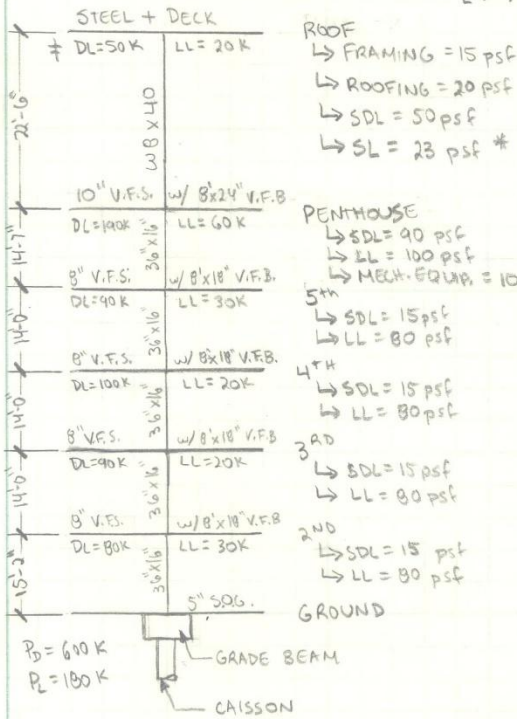 STEEL + DECK
‡ DL=50K LL=20K
22'-6"
W8x40
10" V.F.S. w/ 8'x24" V.F.B
DL=190K LL=60K
14'-7"
36"x16"
8" V.F.S. w/ 8'x18" V.F.B.
DL=90K LL=30K
14'-0"
36"x16"
8" V.F.S. w/ 8'x18" V.F.B.
DL=100K LL=20K
14'-0"
36"x16"
8" V.F.S. w/ 8'x18" V.F.B
DL=90K LL=20K
14'-0"
36"x16"
8" V.F.S. w/ 8'x18" V.F.B
DL=80K LL=30K
15'-2"
36"x16"
5" S.O.G.
PD = 600 K
PL = 180 K
GRADE BEAM
CAISSON
ROOF
↳ FRAMING = 15 psf
↳ ROOFING = 20 psf
↳ SDL = 50 psf
↳ SL = 23 psf *
PENTHOUSE
↳ SDL = 90 psf
↳ LL = 100 psf
↳ MECH. EQUIP. = 10
5th
↳ SDL = 15psf
↳ LL = 80 psf
4TH
↳ SDL = 15 psf
↳ LL = 80 psf
3RD
↳ SDL = 15 psf
↳ LL = 80 psf
2ND
↳ SDL = 15 psf
↳ LL = 80 psf
GROUND